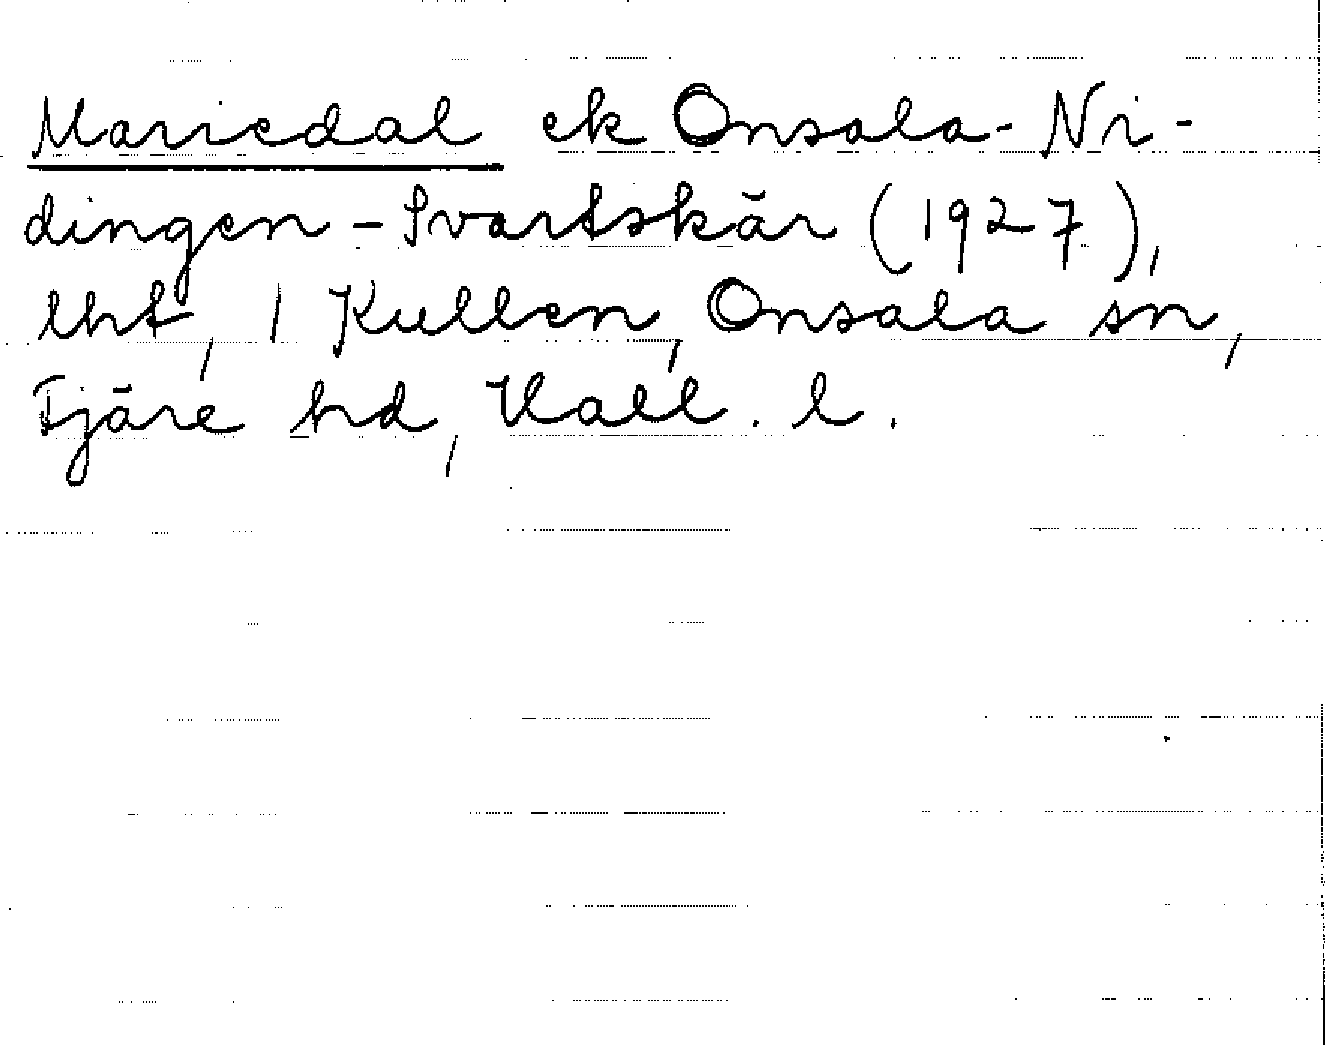 Mariedal ek Onsala-Ni-
dingen-Svartskär (1927),
lht, 1 Kullen, Onsala sn,
Fjäre hd, Hall. l.